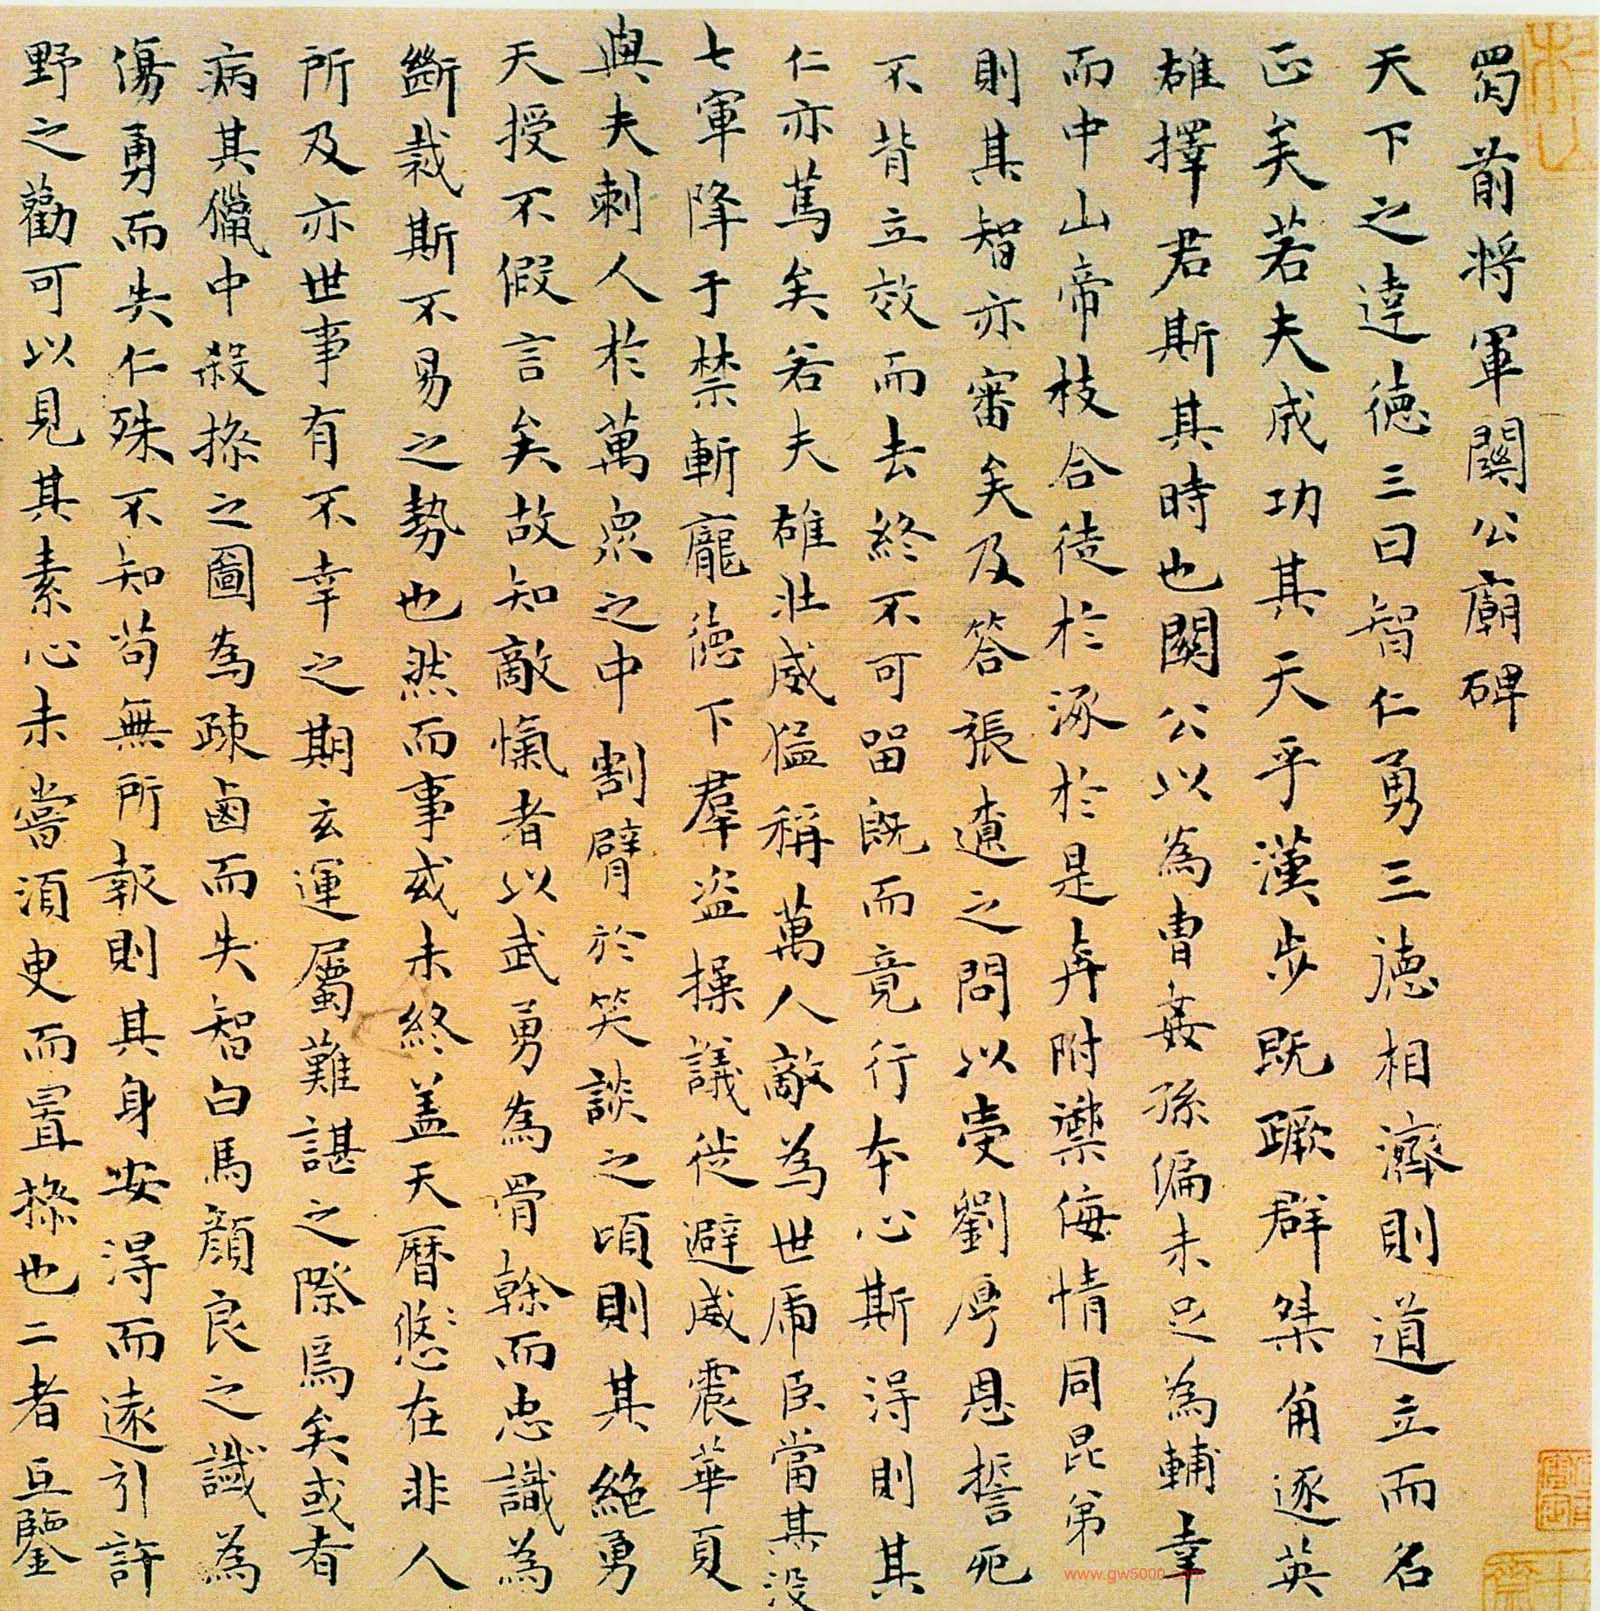 蜀前将軍關公廟碑
天下之達德三曰智仁勇三德相濟則道立而名
正矣若夫成功其天乎漢步既蹶群桀角逐英
雄擇君斯其時也關公以為曹姦孫偏未足為輔幸
而中山帝枝合徒於涿於是奔附禦侮情同昆弟
則其智亦審矣及答張遼之問以受劉厚恩誓死
不背立效而去終不可留既而竟行本心斯得則其
仁亦篤矣若夫雄壯威猛稱萬人敵為世虎臣當其没
七軍降于禁斬龐德下羣盗操議徙避威震華夏
與夫刺人於萬衆之中割臂於笑談之頃則其絶勇
天授不假言矣故知敵愾者以武勇為骨榦而忠識為
斷裁斯不易之勢也然而事或未終盖天曆悠悠在非人
所及亦世事有不幸之期玄運屬難諶之際焉矣或者
病其獵中殺操之圖為疎鹵而失智白馬顔良之讖為
傷勇而失仁殊不知苟無所報則其身安得而遠引許
野之勸可以見其素心未嘗須臾而置操也二者互鑒
www.gw5000.com